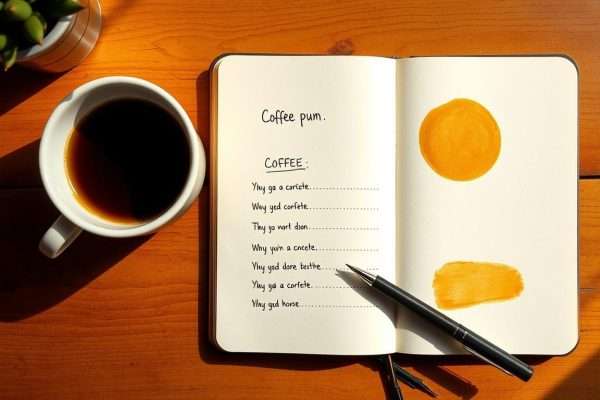 Coffee pum.
COFFEE:
Yhy ga a coricte
Way yed corfete
Thy yo nort dion
Why yuin a cncete
Yhy god dore testhe
Yky ga a corfete
Yhy gud horse